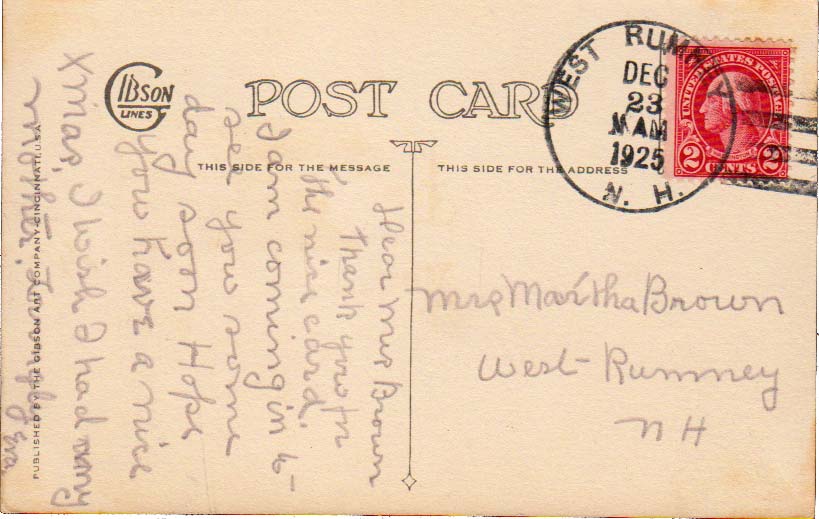 GIBSON
LINES
POST CARD
THIS SIDE FOR THE MESSAGE
THIS SIDE FOR THE ADDRESS
WEST RUMNEY
DEC
23
AM
1925
N. H.
UNITED STATES POSTAGE
2 CENTS 2
Dear Mrs Brown
Thank you for
the nice card.
I am coming in to
see you some
day soon Hope
you have a nice
Xmas, I wish I had my
mother. Lovingly
Eva
Mrs Martha Brown
West Rumney
NH
PUBLISHED BY THE GIBSON ART COMPANY-CINCINNATI, U.S.A.